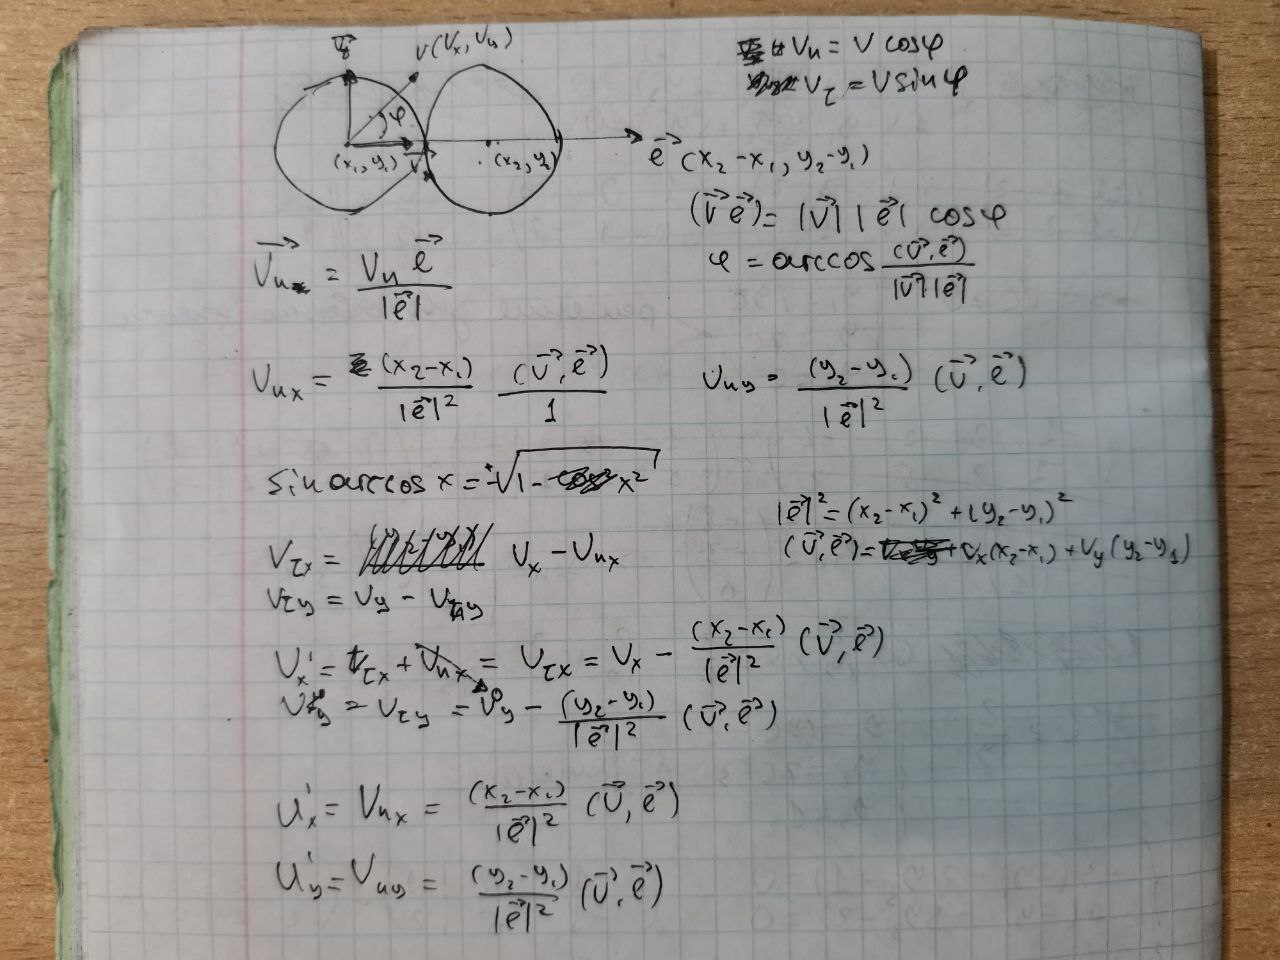 V⃗τ V(Vx, Vy)
φ
(x₁, y₁) V⃗n (x₂, y₂)
Vn = V cosφ
Vτ = V sinφ
e⃗ (x₂ - x₁, y₂ - y₁)
(V⃗ e⃗) = |V⃗| |e⃗| cosφ
φ = arccos (V⃗, e⃗) / |V⃗| |e⃗|
V⃗n = Vn e⃗ / |e⃗|
Vnx = (x₂ - x₁) / |e⃗|² (V⃗, e⃗) / 1
Vny = (y₂ - y₁) / |e⃗|² (V⃗, e⃗)
sin arccos x = ±√(1 - x²)
|e⃗|² = (x₂ - x₁)² + (y₂ - y₁)²
(V⃗, e⃗) = Vx(x₂ - x₁) + Vy(y₂ - y₁)
Vτx = Vx - Vnx
Vτy = Vy - Vny
Vx' = Vτx + Vnx = Vτx = Vx - (x₂ - x₁) / |e⃗|² (V⃗, e⃗)
Vy' = Vτy = Vy - (y₂ - y₁) / |e⃗|² (V⃗, e⃗)
Ux' = Vnx = (x₂ - x₁) / |e⃗|² (V⃗, e⃗)
Uy' = Vny = (y₂ - y₁) / |e⃗|² (V⃗, e⃗)